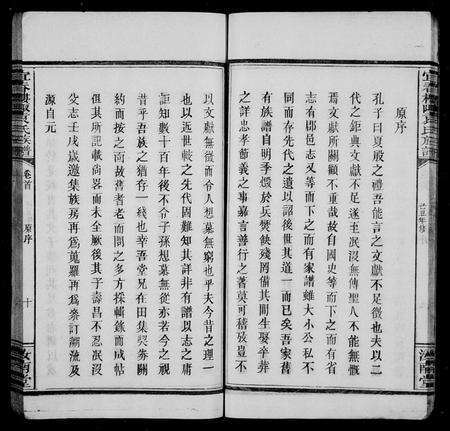 原序
孔子曰夏殷之禮吾能言之文獻不足徵也夫以二
代之鉅典文獻不足遂至泯沒無傳聖人不能無憾
焉文獻所關顧不重哉故自國史等而下之而有省
志有郡邑志又等而下之而有家譜雖大小公私不
同而存先代之遺以詔後世其道一而已矣吾家舊
有族譜自明季燬於兵燹飲殘罔備其間生娶卒葬
之詳忠孝節義之事嘉言善行之著莫可稽攷豈不
以文獻無徵而令人想慕無窮也乎夫今昔之理一
也以近世較之先代固難知其詳非有譜以志之庸
詎知數十百年後不令子孫想慕無從亦若今之視
昔乎吾族之猶存一綫也幸吾堂兄在田集契券關
約而按之商故舊者老而問之多方採輯錄而成帖
但其所記載尚畧而未全厥後其子壽昌不忍泯沒
父志壬戌歲邀集族房再為蒐羅再為參訂溯流及
源自元
宜春
袁氏族譜
卷首
原序
十
汝南堂